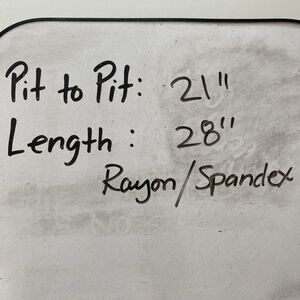 Pit to Pit: 21"
Length : 28"
Rayon/Spandex